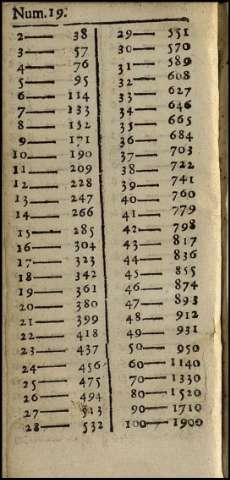 Num.19.
2— 38
3— 57
4— 76
5— 95
6— 114
7— 133
8— 152
9— 171
10— 190
11— 209
12— 228
13— 247
14— 266
15— 285
16— 304
17— 323
18— 342
19— 361
20— 380
21— 399
22— 418
23— 437
24— 456
25— 475
26— 494
27— 513
28— 532
29— 551
30— 570
31— 589
32— 608
33— 627
34— 646
35— 665
36— 684
37— 703
38— 722
39— 741
40— 760
41— 779
42— 798
43— 817
44— 836
45— 855
46— 874
47— 893
48— 912
49— 931
50— 950
60— 1140
70— 1330
80— 1520
90— 1710
100— 1900